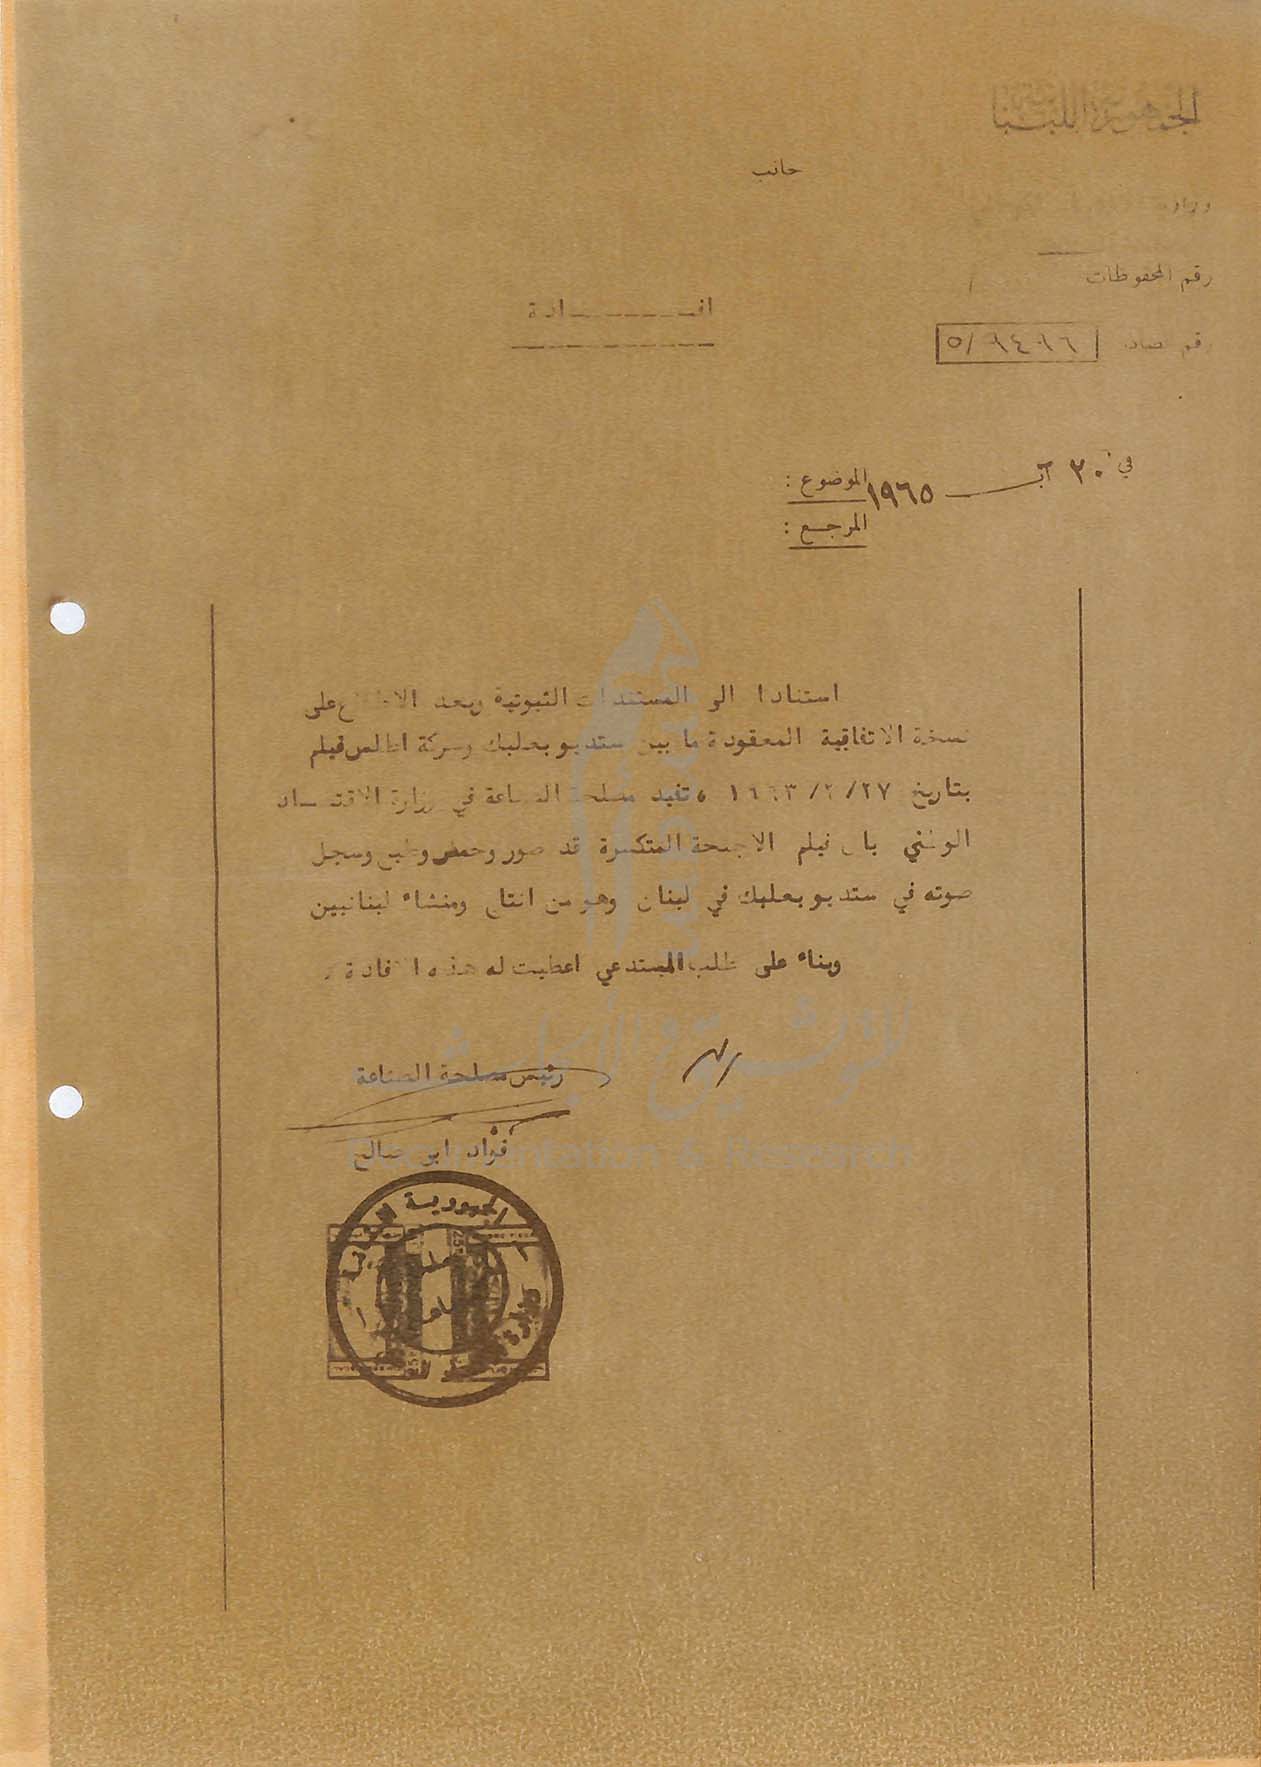 الجمهورية اللبنانية
جانب
وزارة
رقم المحفوظات
افـــــــادة
رقم الصادر
في ٣٠ آب ١٩٦٥
الموضوع :
المرجع :
استنادا الى المستندات الثبوتية وبعد الاطلاع على
نسخة الاتفاقية المعقودة ما بين ستديو بعلبك وشركة اطلس فيلم
بتاريخ ٢٧/٢/١٩٦٣ ، تفيد مصلحة الصناعة في وزارة الاقتصاد
الوطني بان فيلم الاجنحة المتكسرة قد صور وحمض وطبع وسجل
صوته في ستديو بعلبك في لبنان وهو من انتاج ومنشاء لبنانيين
وبناء على طلب المستدعي اعطيت له هذه الافادة
رئيس مصلحة الصناعة
فؤاد ابو صالح
الجمهورية اللبنانية
وزارة
للتوثيق والأبحاث
Documentation & Research